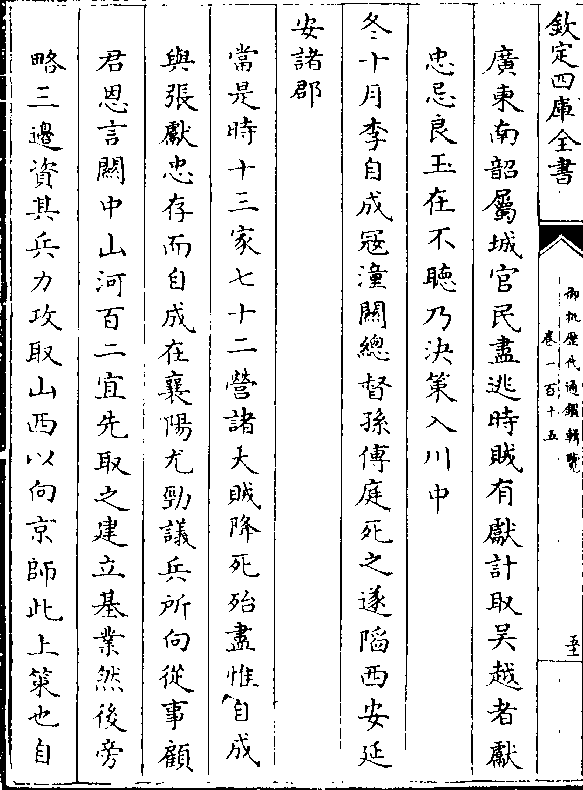 欽定四庫全書
御批歷代通鑑輯覽
卷一百十五
廣東南韶屬城官民盡逃時賊有獻計取吳越者獻
忠忌良玉在不聽乃決策入川中
冬十月李自成寇潼關總督孫傳庭死之遂陷西安延
安諸郡
當是時十三家七十二營諸大賊降死殆盡惟自成
與張獻忠存而自成在襄陽尤勁議兵所向從事顧
君恩言關中山河百二宜先取之建立基業然後旁
略三邊資其兵力攻取山西以向京師此上策也自